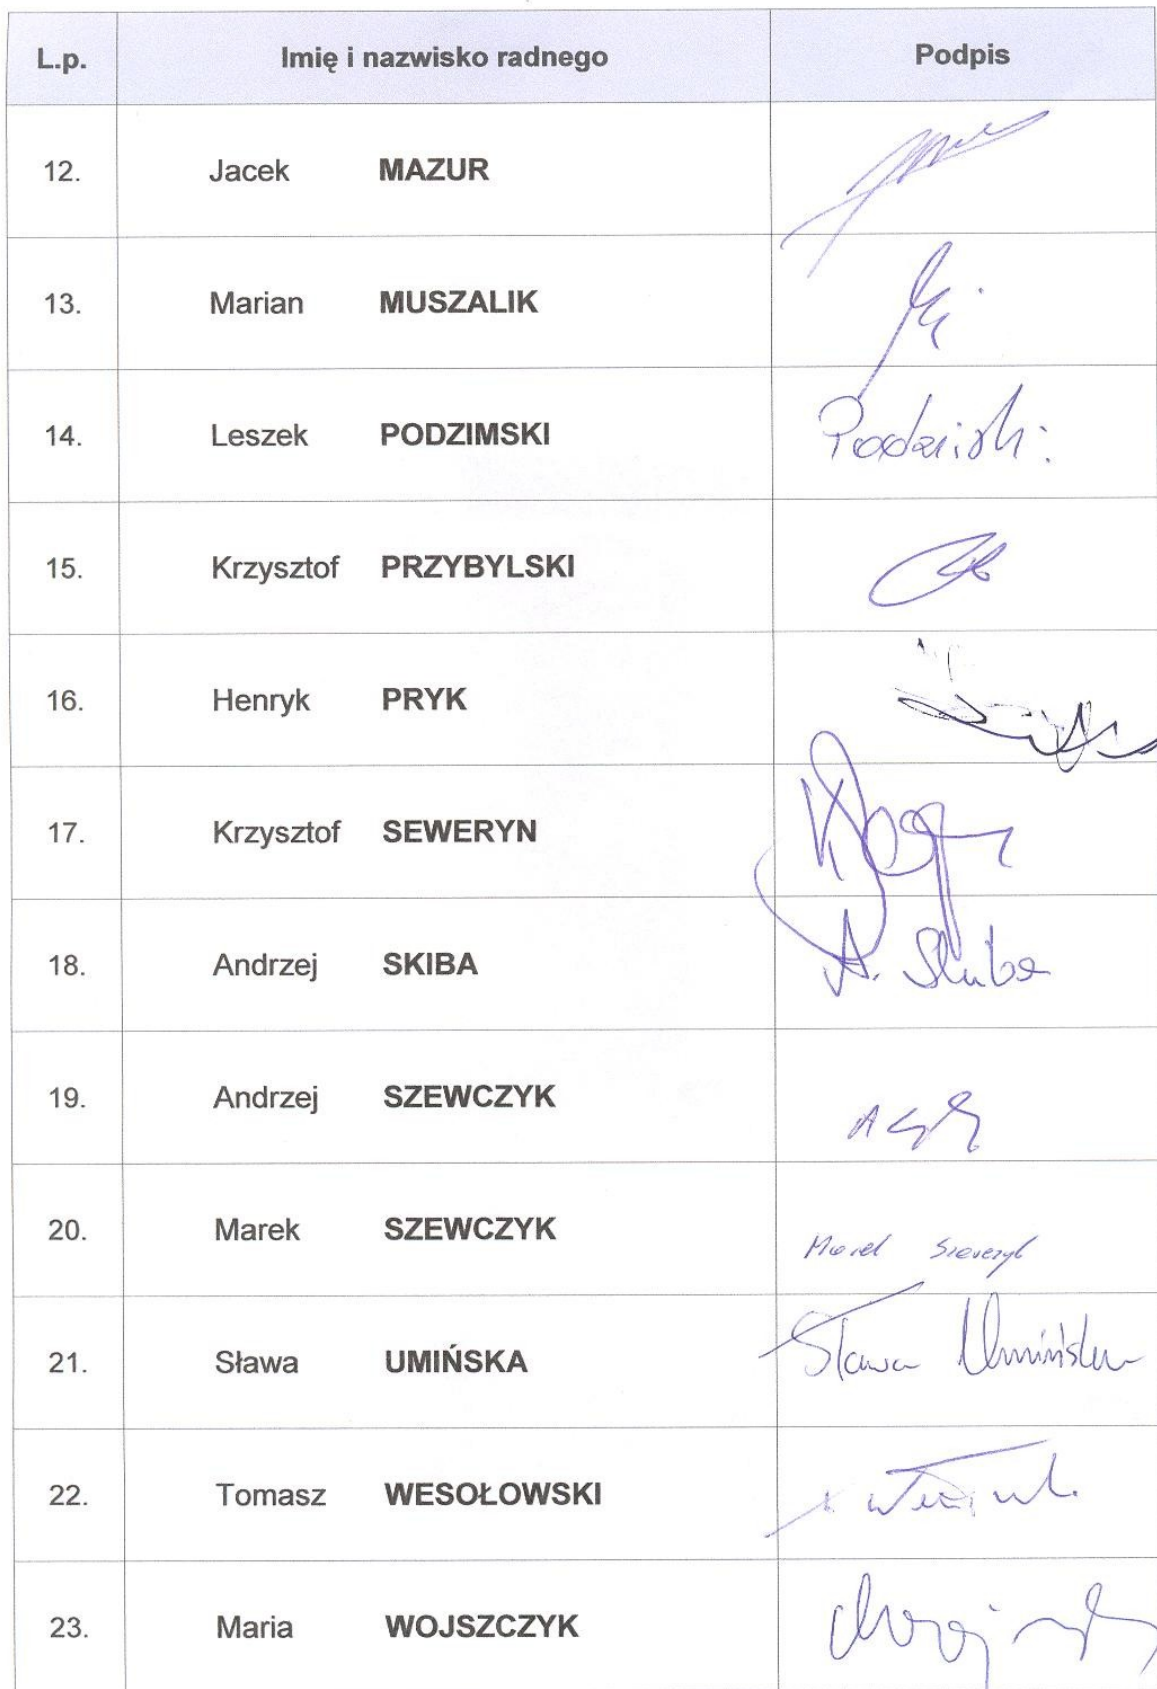 L.p. Imię i nazwisko radnego Podpis
12. Jacek MAZUR
13. Marian MUSZALIK
14. Leszek PODZIMSKI
15. Krzysztof PRZYBYLSKI
16. Henryk PRYK
17. Krzysztof SEWERYN
18. Andrzej SKIBA A. Skiba
19. Andrzej SZEWCZYK
20. Marek SZEWCZYK Marek Szewczyk
21. Sława UMIŃSKA Sława Umińska
22. Tomasz WESOŁOWSKI
23. Maria WOJSZCZYK